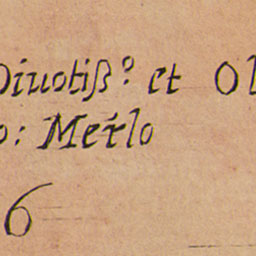 Diuotiß.º et Ol
o: Merlo
6